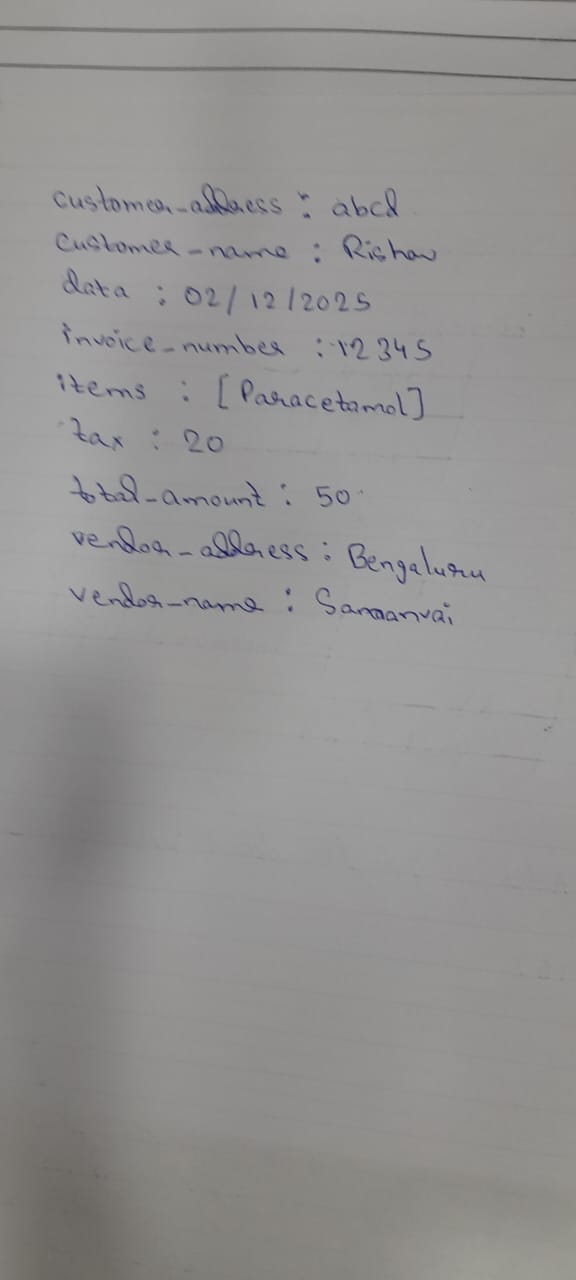 customer_address : abcd
customer_name : Rishav
data : 02/12/2025
invoice_number : 12345
items : [Paracetamol]
tax : 20
total_amount : 50
vendor_address : Bengaluru
vendor_name : Samanvai